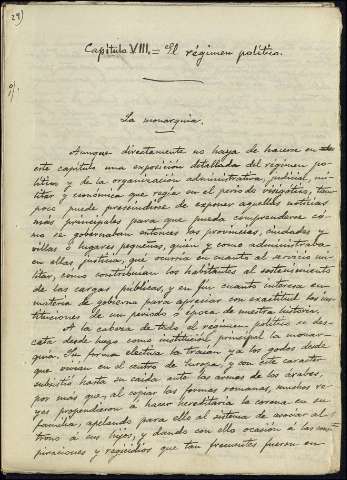 29)
Capítulo VIII. = El régimen político.
La monarquía.
Aunque directamente no haya de hacerse en
este capítulo una exposición detallada del régimen po-
lítico y de la organización administrativa, judicial, mi-
litar y económica que regía en el período visigótico, tam-
poco puede prescindirse de exponer aquellas noticias
más principales para que pueda comprenderse có-
mo se gobernaban entonces las provincias, ciudades y
villas ó lugares pequeños, quién y como administraba
en ellas justicia, qué ocurría en cuanto al servicio mi-
litar, como contribuían los habitantes al sostenimiento
de las cargas públicas, y en fin cuanto interesa en
materia de gobierno para apreciar con exactitud las ins-
tituciones de un período ó época de nuestra historia.
A la cabeza de todo el régimen político se des-
taca desde luego como institución principal la monar-
quía. Su forma electiva la traían ya los godos desde
que vivían en el centro de Europa, y con este carácter
subsistió hasta su caída ante las armas de los árabes,
por más que, al copiar las formas romanas, muchos re-
yes propendieron á hacer hereditaria la corona en su
familia, apelando para ello al sistema de asociar al
trono á sus hijos, y dando con ello ocasión á las cons-
piraciones y regicidios que tan frecuentes fueron en